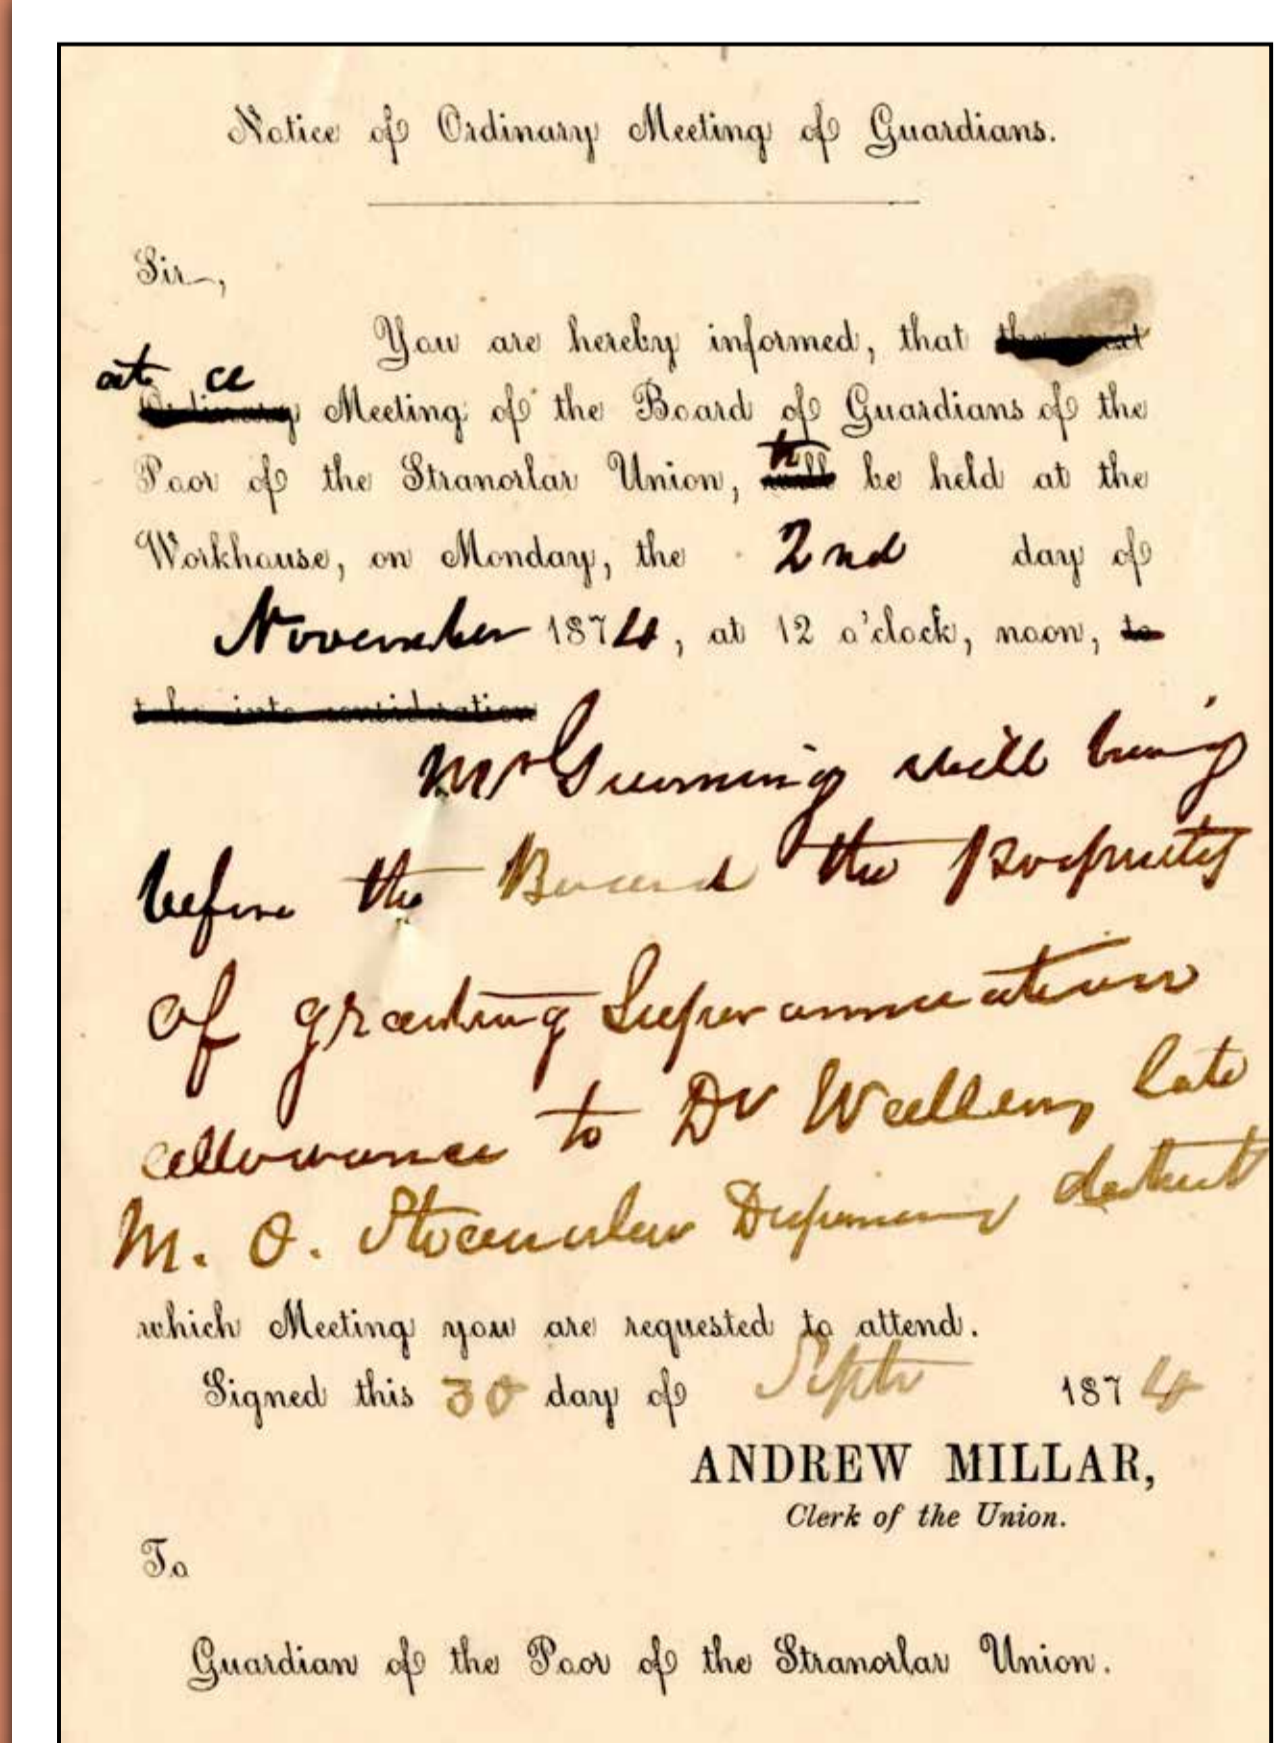 Notice of Ordinary Meeting of Guardians.
Sir,
You are hereby informed, that the next
at a
Ordinary Meeting of the Board of Guardians of the
to
Poor of the Stranorlar Union, will be held at the
Workhouse, on Monday, the 2nd day of
November 1874, at 12 o'clock, noon, to
take into consideration
Mr Gunning will bring
before the Board the propriety
of granting Superannuation
allowance to Dr Wallen late
M. O. Stranorlar Dispensary district
which Meeting you are requested to attend.
Signed this 30 day of Septr 1874
ANDREW MILLAR,
Clerk of the Union.
To
Guardian of the Poor of the Stranorlar Union.